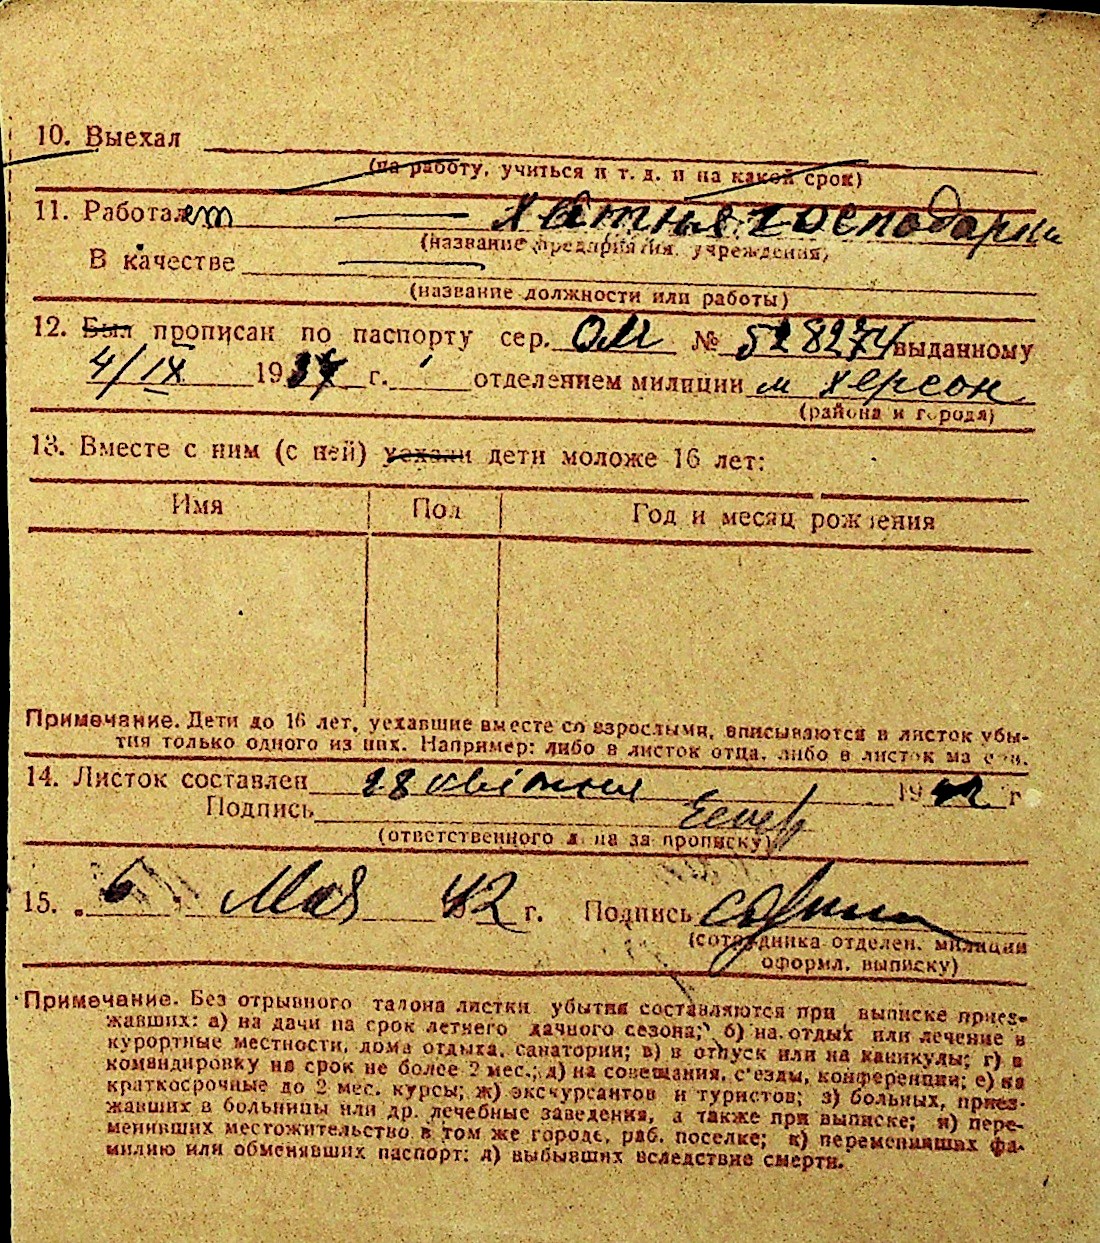 10. Выехал
(на работу, учиться и т. д. и на какой срок)
11. Работает хатня господарка
(название предприятия, учреждения)
В качестве
(название должности или работы)
12. Был прописан по паспорту сер. ОМ № 528274 выданному
4/IX 1937 г. отделением милиции м Херсон
(района и города)
13. Вместе с ним (с ней) уехали дети моложе 16 лет:
Имя Пол Год и месяц рождения
Примечание. Дети до 16 лет, уехавшие вместе со взрослыми, вписываются в листок убы-
тия только одного из них. Например: либо в листок отца, либо в листок матери.
14. Листок составлен 28 квітня 1942 г
Подпись
(ответственного лица за прописку)
15. 6 Мая 42 г. Подпись
(сотрудника отделен. милиции
оформл. выписку)
Примечание. Без отрывного талона листки убытия составляются при выписке приез-
жавших: а) на дачи на срок летнего дачного сезона; б) на отдых или лечение в
курортные местности, дома отдыха, санатории; в) в отпуск или на каникулы; г) в
командировку на срок не более 2 мес.; д) на совещания, с'езды, конференции; е) на
краткосрочные до 2 мес. курсы; ж) экскурсантов и туристов; з) больных, приез-
жавших в больницы или др. лечебные заведения, а также при выписке; и) пере-
менивших местожительство в том же городе, раб. поселке; к) переменивших фа-
милию или обменявших паспорт; л) выбывших вследствие смерти.